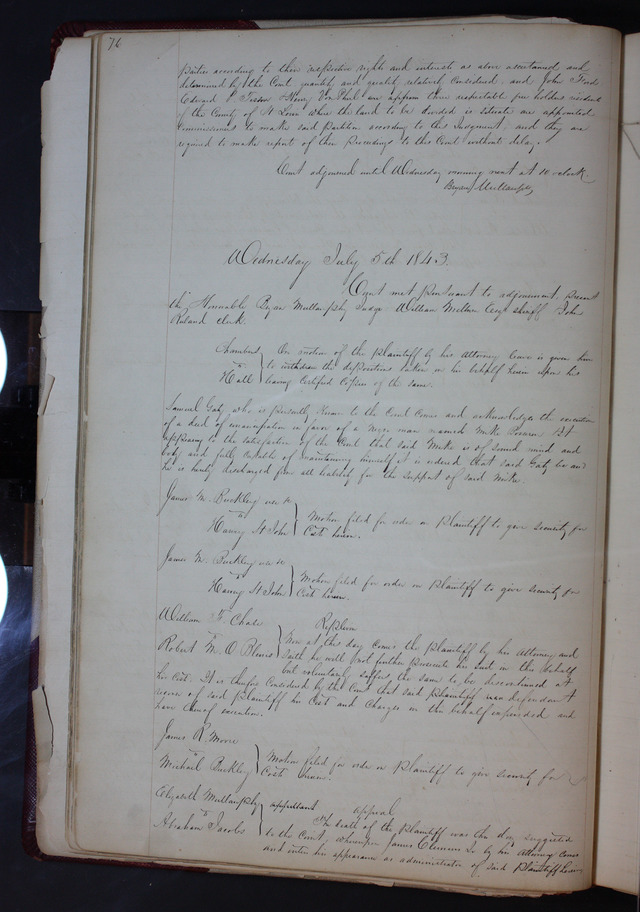 76
parties according to their respective rights and interests as above ascertained and
determined by the Court quantity and quality relatively considered, and John
Edward and Henry Von Phul are appointed three respectable free holders resident
of the County of St Louis where the land to be divided is situate are appointed
Commissioners to make said partition according to this Judgment, and they are
required to make report of their Proceedings to this Court without delay.
Court adjourned until Wednesday morning next at 10 oclock.
Bryan Mullanphy
Wednesday July 5th 1843.
Court met pursuant to adjournment, present
the Honorable Bryan Mullanphy Judge William Milburn Esqr sheriff John
Ruland clerk.
Chambers
vs
Hall
On motion of the plaintiff by his Attorney leave is given him
to withdraw the depositions taken in his behalf herein upon his
leaving Certified Copies of the same.
Samuel Gaty who is personally known to the Court Comes and acknowledges the execution
of a deed of emancipation in favor of a Negro man named Mike It
appearing to the satisfaction of the Court that said Mike is of sound mind and
body and fully capable of maintaining himself it is ordered that said Gaty be and
he is hereby discharged from all liability for the support of said Mike
James M. Buckley use &c
vs
Henry St John
Motion filed for order on Plaintiff to give security for
Costs herein.
James M. Buckley use &c
vs
Henry St John
Motion filed for order on Plaintiff to give security for
Cost herein.
William F. Chase
vs
Robert M. O Blenis
Replevin
Now at this day Comes the plaintiff by his Attorney and
saith he will not further prosecute his suit in this behalf
but voluntarily suffers the same to be discontinued at
his Cost. It is therefore Considered by the Court that said plaintiff defendant
recover of said plaintiff his Cost and Charges in this behalf expended and
have thereof execution.
James R Moore
vs
Michael Buckley
Motion filed for order on plaintiff to give security for
Costs herein.
Elizabeth Mullanphy appellant
vs
Abraham Jacobs
appeal
The death of the plaintiff was this day suggested
to the Court, whereupon James Clemens Jr by his Attorney comes
and enters his appearance as administrator of said Plaintiff